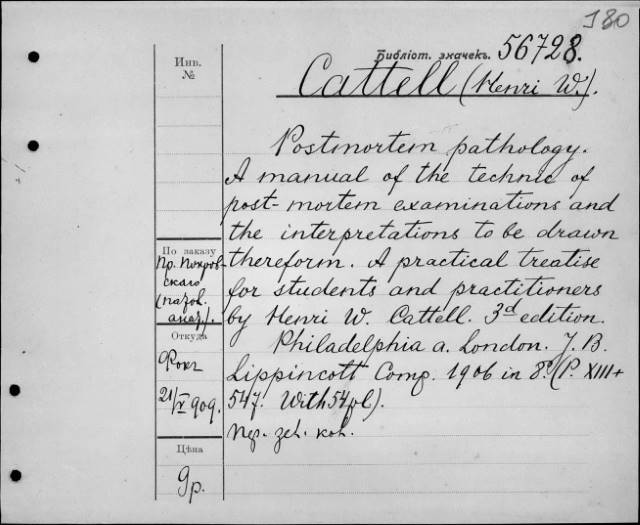 180
Библіот. значекъ. 56728.
Cattell (Henri W.).
Инв.
№
Postmortem pathology.
A manual of the technic of
post-mortem examinations and
the interpretations to be drawn
thereform. A practical treatise
for students and practitioners
by Henri W. Cattell. 3d edition.
Philadelphia a. London. J. B.
Lippincott Comp. 1906 in 8º. (P. XIII+
547. With 54 pl).
По заказу
Пр. Покров-
скаго
Откуда
21/V 909.
Цѣна
9р.